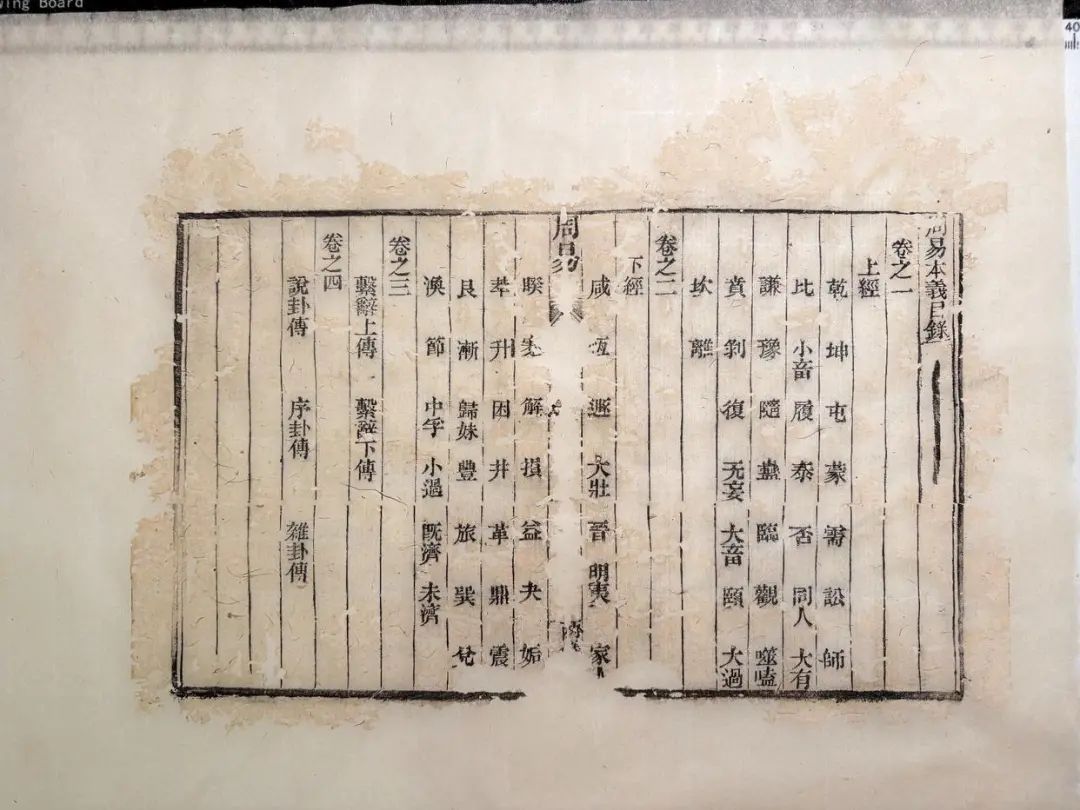 周易本義目錄
卷之一
上經
乾 坤 屯 蒙 需 訟 師
比 小畜 履 泰 否 同人 大有
謙 豫 隨 蠱 臨 觀 噬嗑
賁 剝 復 无妄 大畜 頤 大過
坎 離
卷之二
下經
咸 恆 遯 大壯 晉 明夷 家
周易
睽 蹇 解 損 益 夬 姤
萃 升 困 井 革 鼎 震
艮 漸 歸妹 豐 旅 巽 兌
渙 節 中孚 小過 既濟 未濟
卷之三
繫辭上傳 繫辭下傳
卷之四
說卦傳 序卦傳 雜卦傳
wing Board
40